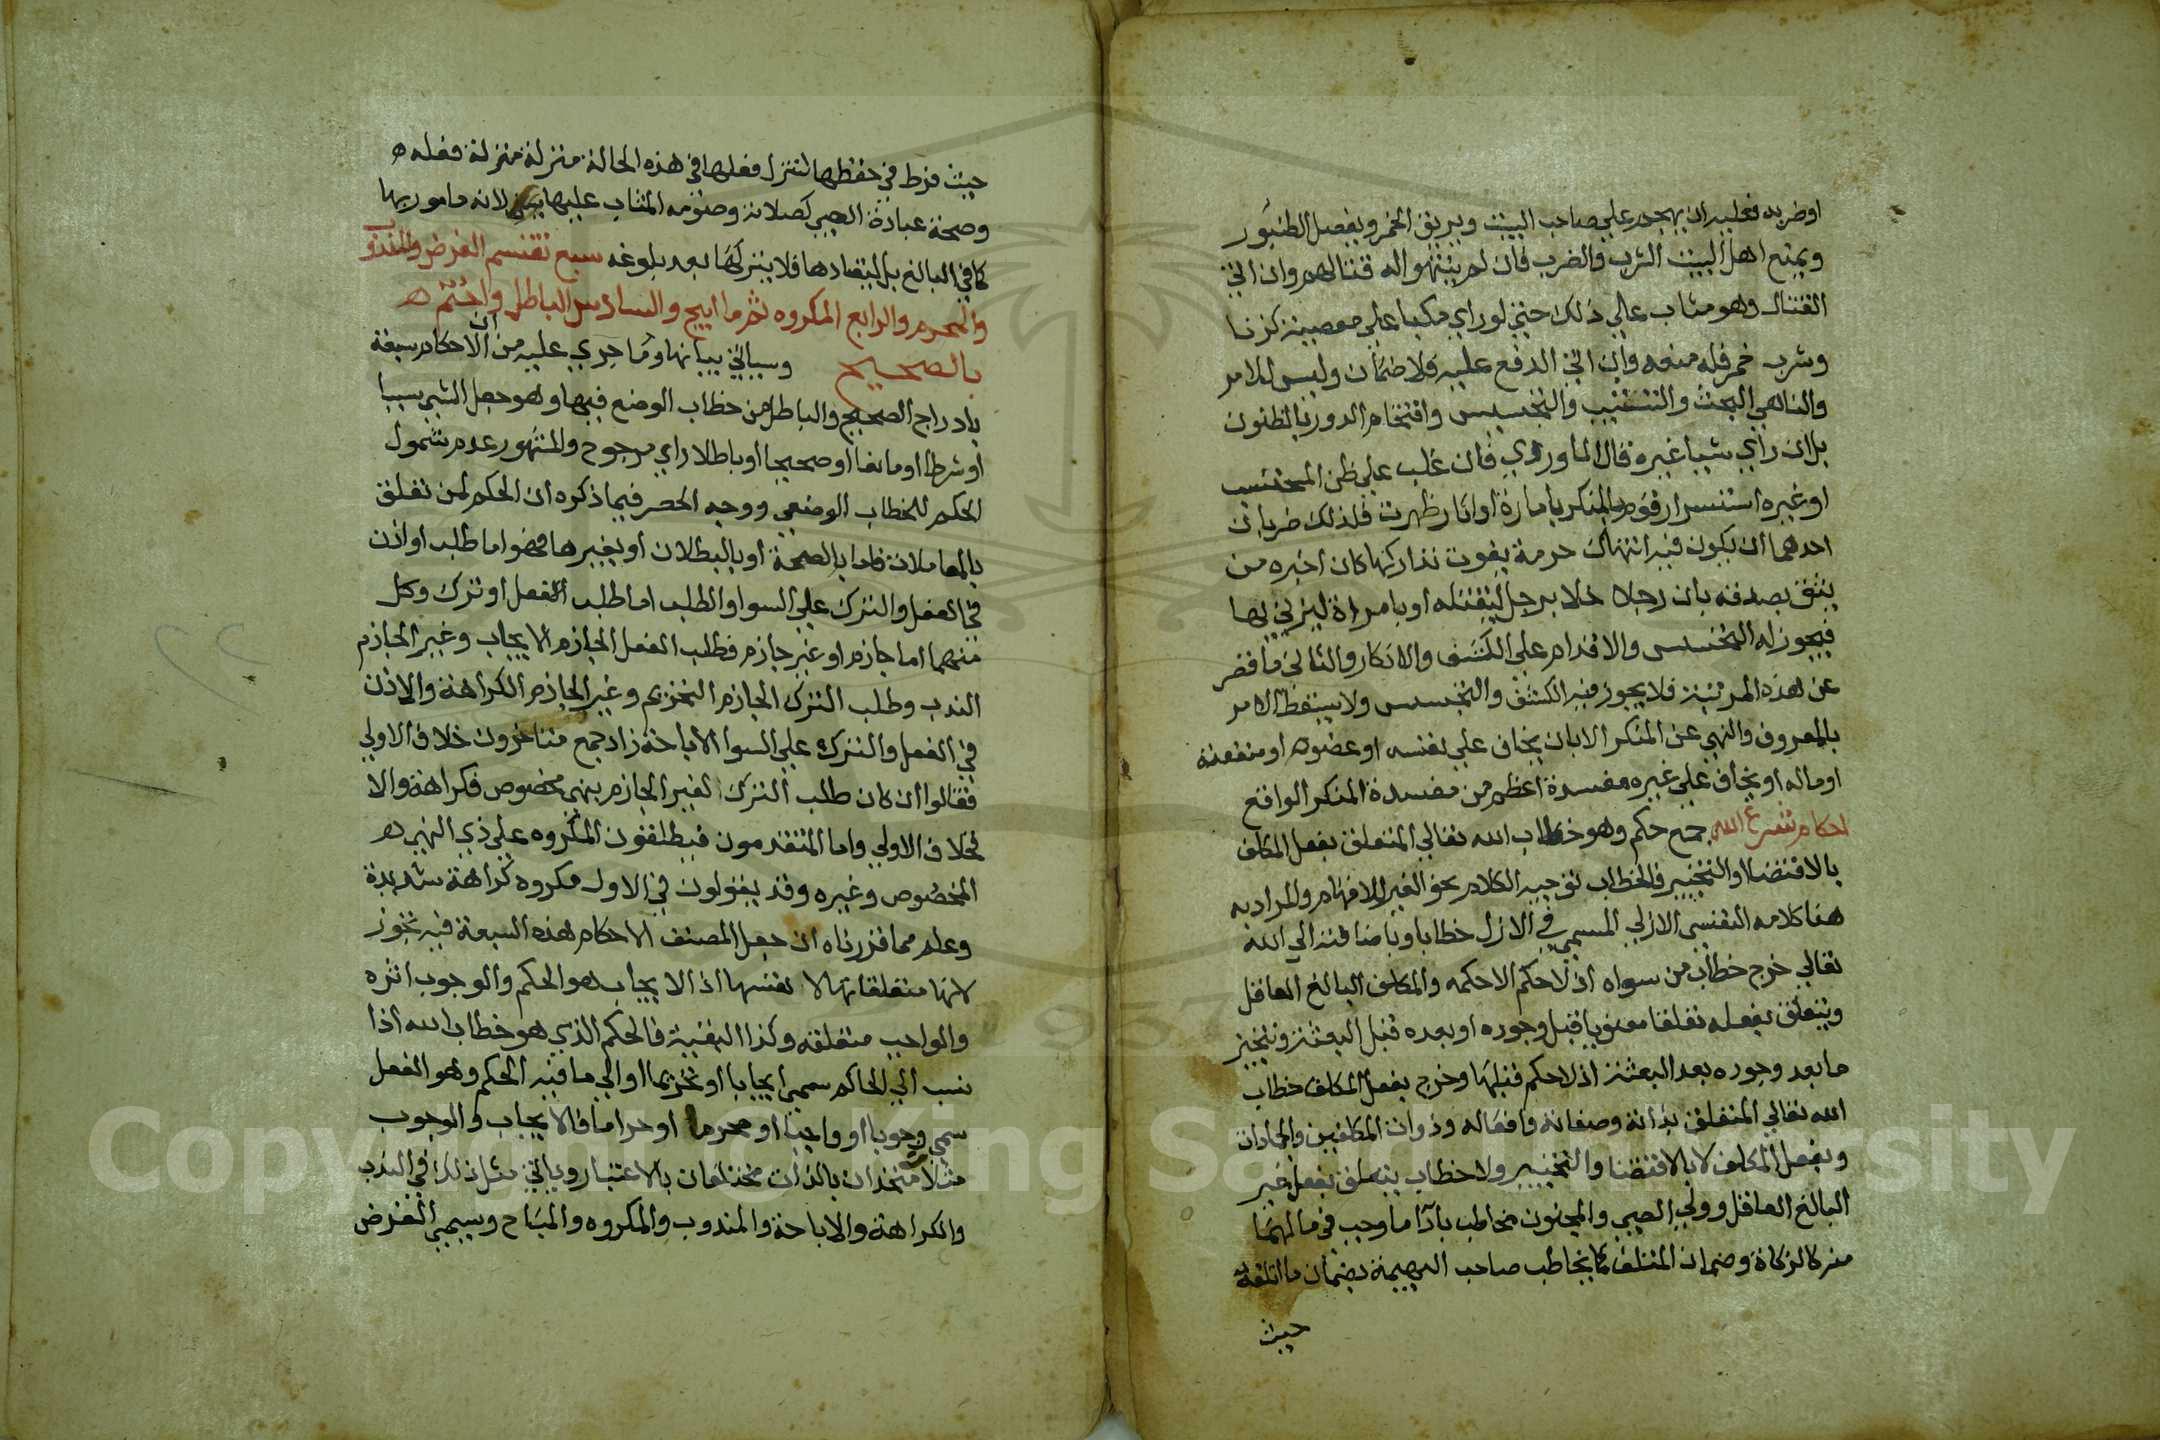 او ضربه فعليه ان يهجم علي صاحب البيت ويريق الخمر ويفصل الطنبور
ويمنع اهل البيت الشرب والضرب فان لم ينتهوا له قتالهم وان اتي
القتال وهو مثاب علي ذلك حتي لو راي مكبا علي معصية كزنا
وشرب خمر فله منعه وان اتي الدفع عليه فلا ضمان وليس للامر
والناهي البحث والتنقيب والتجسيس واقتحام الدور بالظنون
بل ان راي شيا غيره وقال الماوردي فان غلب علي ظن المحتسب
او غيره استسرار قوم بالمنكر بامارة او اثار ظهرت فذلك ضربان
احدهما ان يكون فيه انتهاك حرمة يفوت تداركها كان اخبره من
يثق بصدقه بان رجلا خلا برجل ليقتله او بامراة ليزني بها
فيجوز له التجسيس والاقدام علي الكشف والانكار والثاني ما قصر
عن هذه المرتبة فلا يجوز فيه الكشف والتجسيس ولا يسقط الامر
بالمعروف والنهي عن المنكر الا بان يخاف علي نفسه او عضوه او منفعته
او ماله او يخاف علي غيره مفسدة اعظم من مفسدة المنكر الواقع
احكام شرع الله جمع حكم وهو خطاب الله تعالي المتعلق بفعل المكلف
بالاقتضا او التخيير فالخطاب توجيه الكلام نحو الغير للافهام والمراد به
هنا كلامه النفسي الازلي المسمي في الازل خطابا وباضافته الي الله
تعالي خرج خطاب من سواه اذ لا حكم الا حكمه والمكلف البالغ العاقل
ويتعلق بفعله تعلقا معنويا قبل وجوده او بعده قبل البعثة وتنجيز
ما بعد وجوده بعد البعثة اذ لا حكم قبلها وخرج بفعل المكلف خطاب
الله تعالي المتعلق بذاته وصفاته وافعاله وذوات المكلفين والجمادات
وبفعل المكلف لا بالاقتضا والتخيير ولا خطاب يتعلق بفعل غير
البالغ العاقل وولي الصبي والمجنون مخاطب بادا ما وجب في مالهما
منه كالزكاة وضمان المتلف كما يخاطب صاحب البهيمة بضمان ما اتلفته
حيث
حيث فرط في حفظها لتنزل فعلها في هذه الحالة منزلة منزلة فعله ه
وصحة عبادة الصبي كصلاته وصومه المثاب عليها ليس لانه مامور بها
كما في البالغ بل ليعتادها فلا يتركها بعد بلوغه سبع تقسم الفرض والمندوب
والمحرم والرابع المكروه ثم ما ابيح والسادس الباطل واختم ه
بالصحيح وسياتي بيانها وما جري عليه من ان الاحكام سبعة
بادراج الصحيح والباطل من خطاب الوضع فيها وهو جعل الشي سببا
او شرطا او مانعا او صحيحا او باطلا راي مرجوح والمشهور عدم شمول
الحكم للخطاب الوضعي ووجه الحصر فيما ذكره ان الحكم لمن تعلق
بالمعاملات فاما بالصحة او بالبطلان او بغيرها فهو اما طلب او اذن
في الفعل والترك علي السوا والطلب اما طلب الفعل او ترك وكل
منهما اما جازم او غير جازم فطلب الفعل الجازم الايجاب وغير الجازم
الندب وطلب الترك الجازم التحريم وغير الجازم الكراهة والاذن
في الفعل والترك علي السوا الاباحة زاد جمع متاخرون خلاف الاولي
فقالوا ان كان طلب الترك الغير الجازم بنهي مخصوص فكراهة والا
فخلاف الاولي واما المتقدمون فيطلقون المكروه علي ذي النهي ه
المخصوص وغيره وقد يقولون في الاول مكروه كراهة شديدة
وعلم مما قررناه ان جعل المصنف الاحكام هذه السبعة فيه تجوز
لانها متعلقاتها لا نفسها اذ الايجاب هو الحكم والوجوب اثره
والواجب متعلقه وكذا البقية فالحكم الذي هو خطاب الله اذا
نسب الي الحاكم سمي ايجابا او تحريما او الي ما فيه الحكم وهو الفعل
سمي وجوبا او واجبا او محرما او حراما فالايجاب والوجوب
مثلا متحدان بالذات مختلفان بالاعتبار وياتي مثل ذلك في الندب
والكراهة والاباحة والمندوب والمكروه والمباح ويسمي الفرض
Copyright © King Saud University